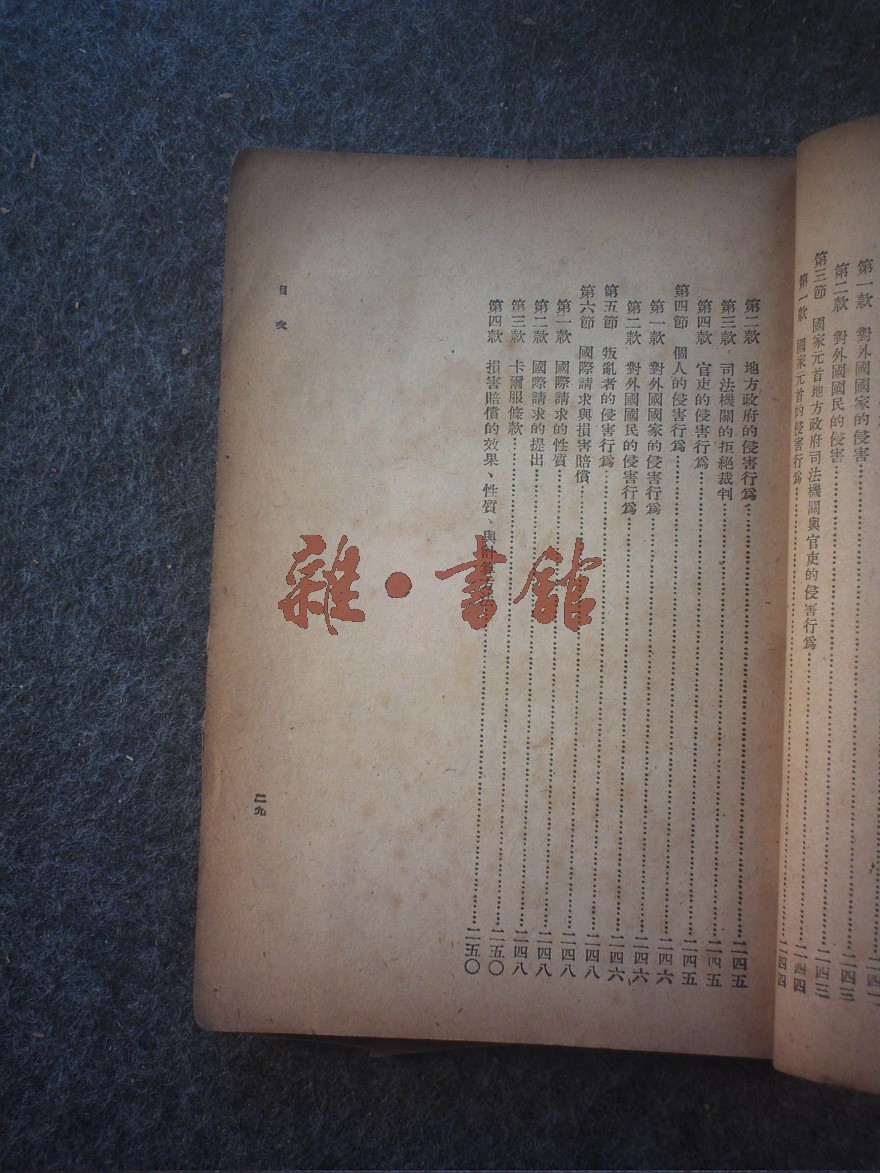 第一款 對外國國家的侵害……二四三
第二款 對外國國民的侵害……二四三
第三節 國家元首地方政府司法機關與官吏的侵害行爲……二四四
第一款 國家元首的侵害行爲……二四四
第二款 地方政府的侵害行爲……二四五
第三款 司法機關的拒絕裁判……二四五
第四款 官吏的侵害行爲……二四五
第四節 個人的侵害行爲……二四六
第一款 對外國國家的侵害行爲……二四六
第二款 對外國國民的侵害行爲……二四六
第五節 叛亂者的侵害行爲……二四八
第六節 國際請求與損害賠償……二四八
第一款 國際請求的性質……二四八
第二款 國際請求的提出……二四八
第三款 卡爾服條款……二五〇
第四款 損害賠償的效果、性質、與……二五〇
目次
二九
雜·書館